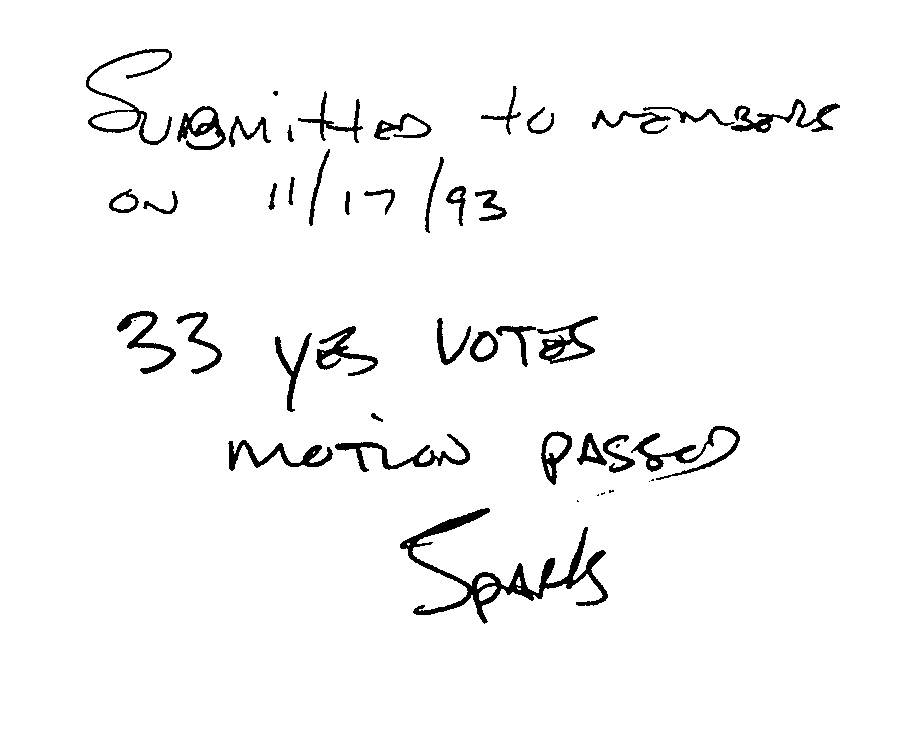 Submitted to members
on 11/17/93
33 yes votes
motion passed
Sparks